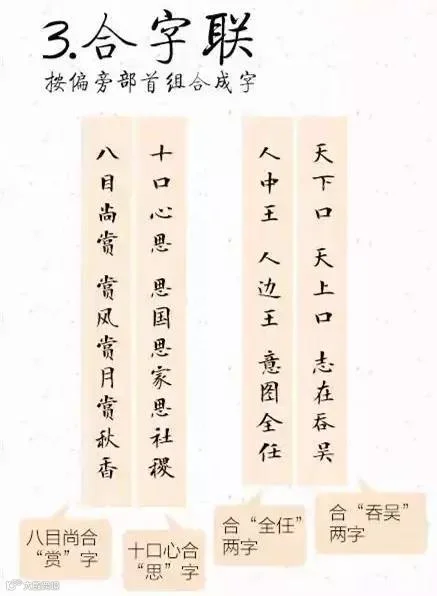 3.合字联
按偏旁部首组合成字
天下口 天上口 志在吞吴
人中王 人边王 意图全任
十口心思 思国思家思社稷
八目尚赏 赏风赏月赏秋香
合“吞吴”
两字
合“全任”
两字
十口心合
“思”字
八目尚合
“赏”字